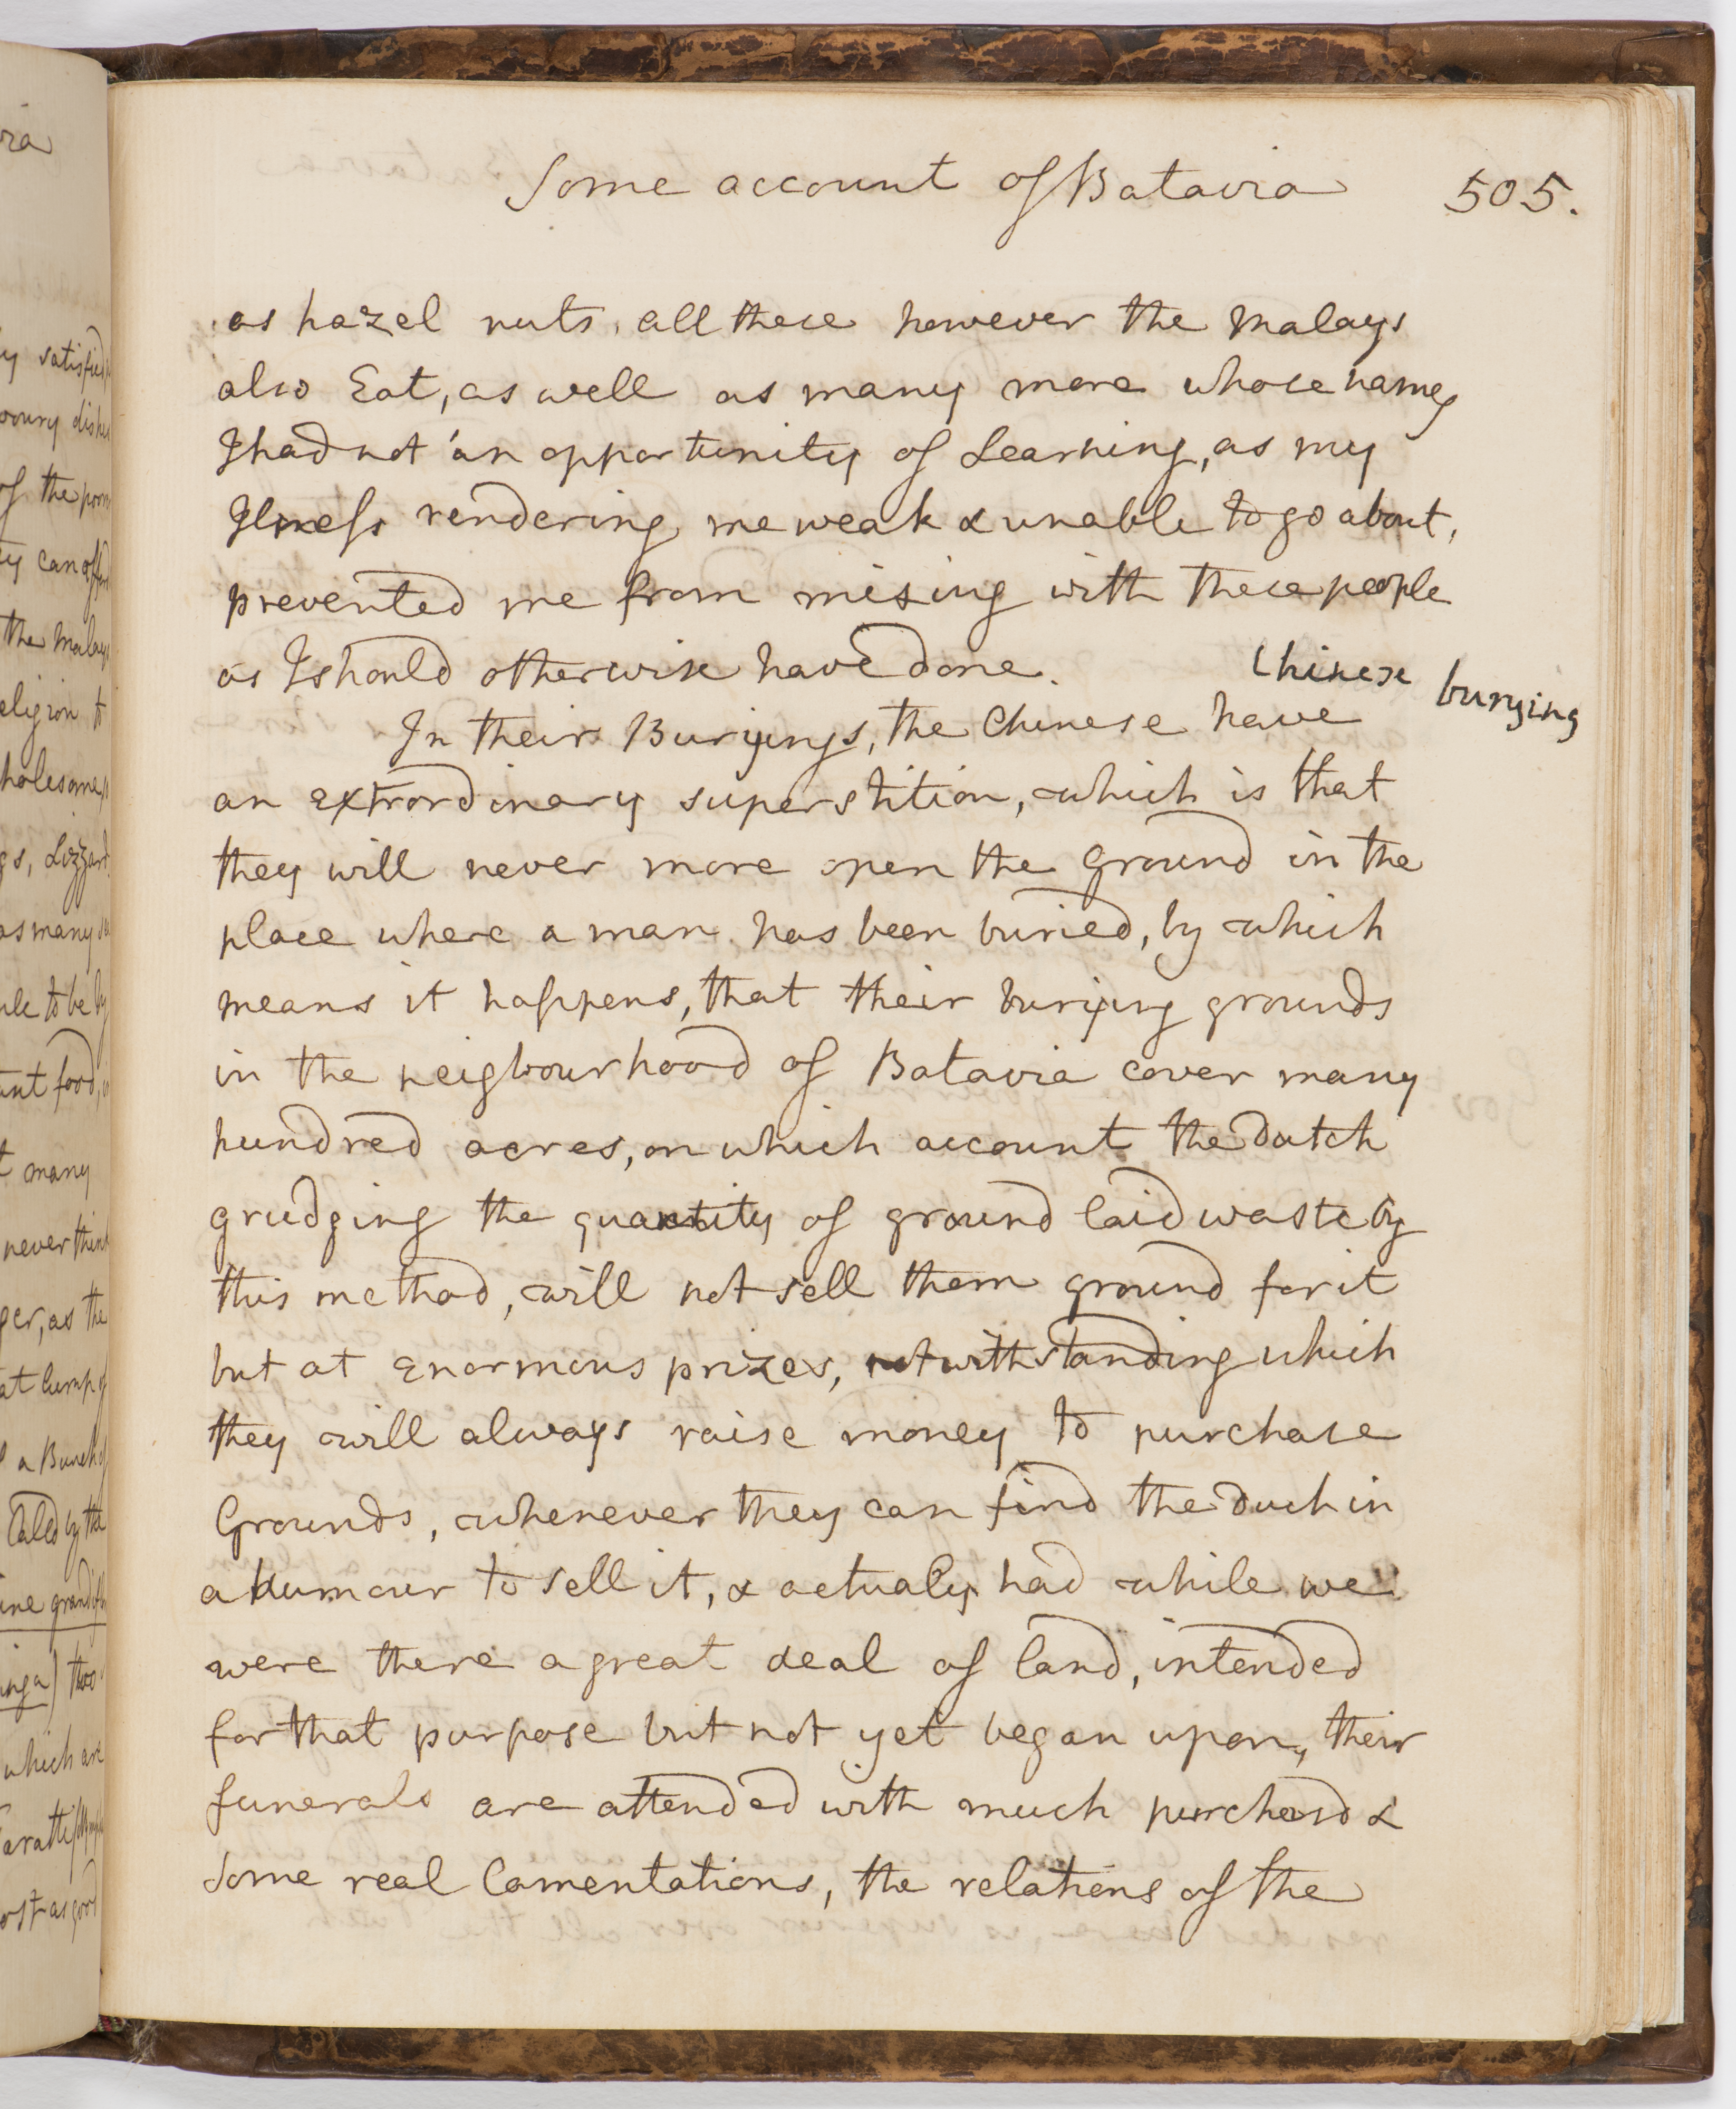 Some account of Batavia 505.
as hazel nuts, all these however the Malays
also Eat, as well as many more whose names
I had not an opportunity of Learning, as my
Ilness rendering me weak & unable to go about,
prevented me from mixing with these people
as I should otherwise have done.
Chinese burying
In their Buryings, the Chinese have
an extrordinary superstition, which is that
they will never more open the Ground in the
place where a man has been buried, by which
means it happens, that their burying grounds
in the neigbourhood of Batavia cover many
hundred acres, on which account the Dutch
grudging the quantity of ground laid waste by
this method, will not sell them ground for it
but at Enormous prizes, notwithstanding which
they will always raise money to purchase
Grounds, whenever they can find the Duch in
a humour to sell it, & actualy had while we
were there a great deal of land, intended
for that purpose but not yet began upon, their
funerals are attended with much purchasd &
some real lamentations, the relations of the
ria
satisfied
of the poor
the Malays
religion to
holesome
gs, Lizzard
as many
to be by
food,
many
never think
ger, as the
at lump of
a Bunch of
Caled by the
which are
as good